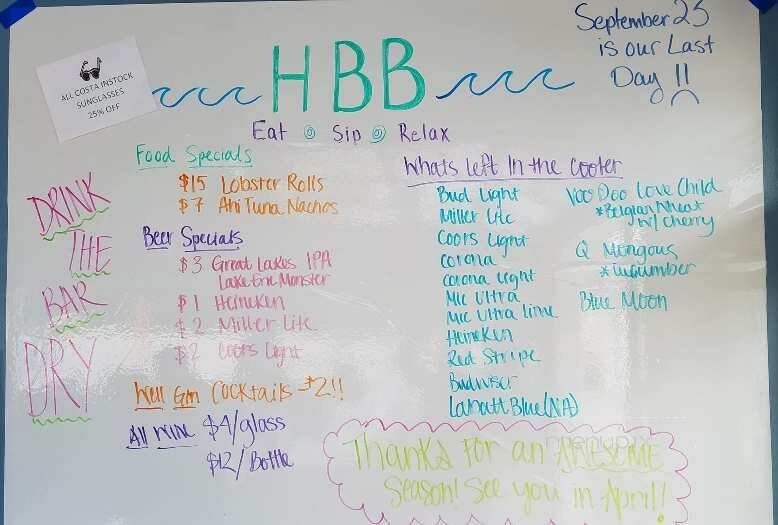 September 25
is our Last
Day !!
ALL COSTA INSTOCK
SUNGLASSES
25% OFF
HBB
Eat @ Sip @ Relax
Food Specials
$15 Lobster Rolls
$7 Ahi Tuna Nachos
DRINK
THE
BAR
DRY
Beer Specials
$3 Great Lakes IPA
Lake Erie Monster
$1 Heineken
$2 Miller Lite
$2 Coors Light
Well Gin Cocktails $2!!
All Wine $4/glass
$12/Bottle
Whats left In the cooler
Bud Light
Miller Lite
Coors Light
Corona
Corona Light
Mic Ultra
Mic Ultra Lime
Heineken
Red Stripe
Budwiser
Labatt Blue (NA)
Voo Doo Love Child
*Belgian Wheat
w/ Cherry
Q Mongous
*cucumber
Blue Moon
Thanks For an AWESOME
Season! See you in April!!